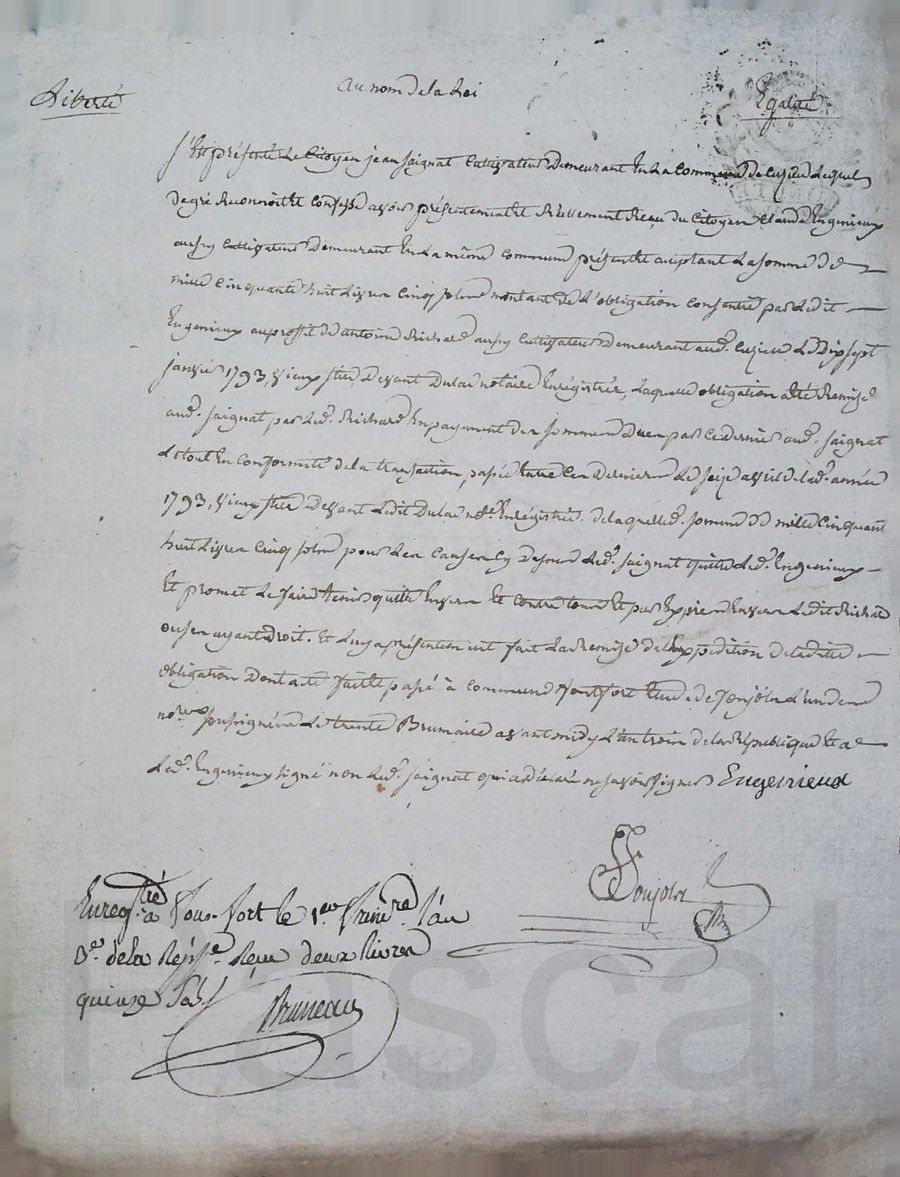 Liberté
au nom de la Loi
Egalité
s'est présenté le Citoyen jean jaignat Cultivateur demeurant En la commune de Cuzieu Lequel
de gré Reconnoit Et Confesse avoir présentement Et Réellement Reçu du Citoyen Claude Eugenieux
aussy Cultivateur demeurant En la même commune présent Et aceptant La somme de
mille cinquante huit Livres Cinq sols montant de L'obligation Consentie par Ledit
Eugenieux au proffit d'antoine Richard aussy Cultivateur demeurant aud. Cuzieu Le Dix sept
janvier 1793, vieux stile devant Dulac notaire Enrégistrée, Laquelle obligation a été Remise
aud. jaignat par Led. Richard En payement des sommes Dues par Ce dernier aud. jaignat
Le tout En Conformité de la transaction, passée Entre Ces Derniers Le seize avril de lad. année
1793, vieux stile Devant Ledit Dulac not.re Enrégistrée. de laquelle d. somme de mille Cinquante
huit Livres Cinq sols pour Les Causes Cy dessus Led. jaignat quitte Led. Eugenieux
Et promet Le faire tenir quitte Envers Et Contre tous Et par Exprès Envers Ledit Richard
ou ses ayant droit. Et Luy a présentement fait La Remise de L'expédition de ladite
obligation Dont acte fait Et passé à Commune d'armes fort Etude de Jonjolx L'un des
no.res soussignés Le trente Brumaire avant midy L'an trois de la République Et a
Led. Eugenieux signé non Led. jaignat qui a déclaré ne savoir signer Eugenieux
Enreg.tré à fort le 1.er frim.re l'an
3.e de la Rép.e Reçu deux livres
quinze sols
Bruneau
Pascal